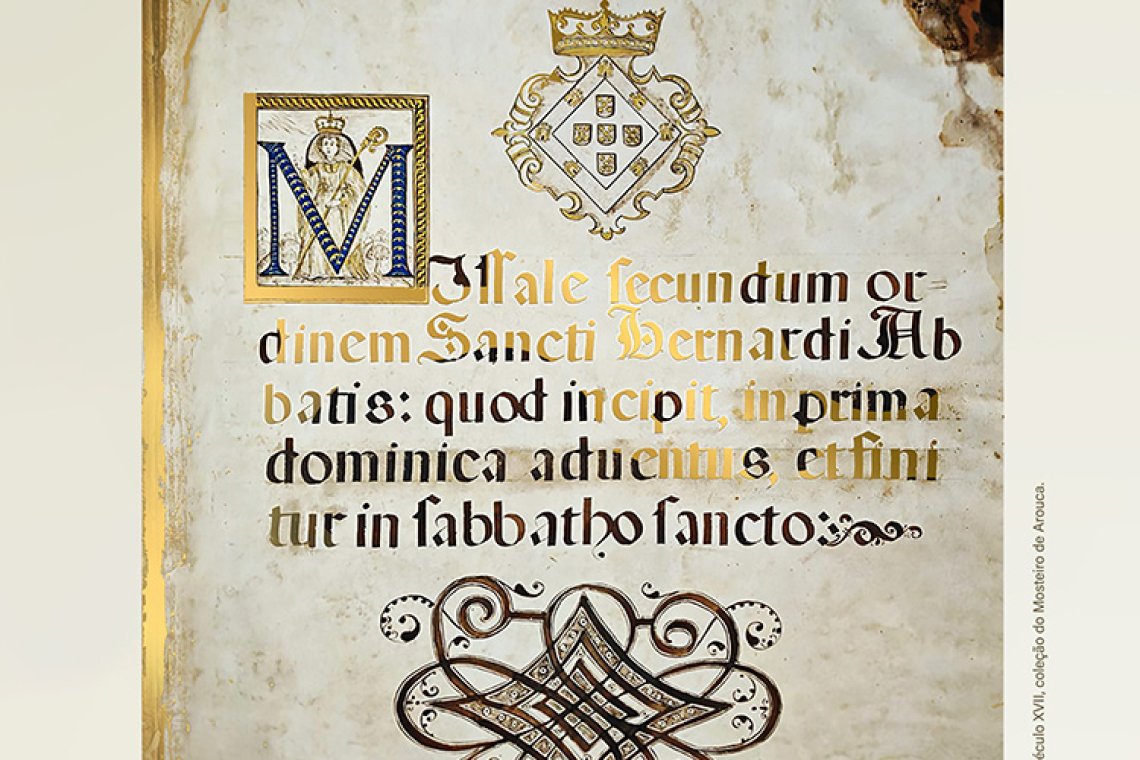 MIſſale ſecundum or=
dinem Sancti Bernardi Ab
batis: quod incipit, in prima
dominica aduentus, et fini
tur in ſabbatho ſancto:
éculo XVII, coleção do Mosteiro de Arouca.